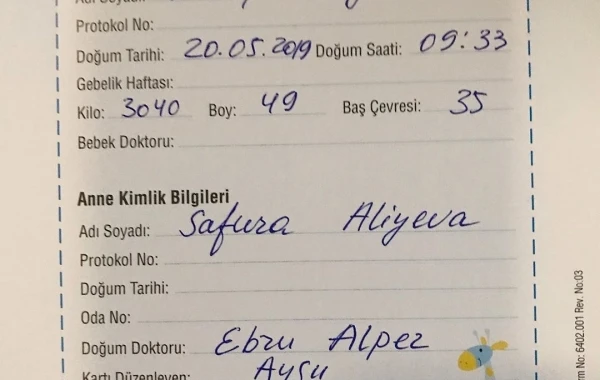 Adı Soyadı:
Protokol No:
Doğum Tarihi: 20.05.2019 Doğum Saati: 09:33
Gebelik Haftası:
Kilo: 3040 Boy: 49 Baş Çevresi: 35
Bebek Doktoru:
Anne Kimlik Bilgileri
Adı Soyadı: Safura Aliyeva
Protokol No:
Doğum Tarihi:
Oda No:
Doğum Doktoru: Ebru Alper
Kartı Düzenleyen: Aysu
rm No: 6402.001 Rev. No:03